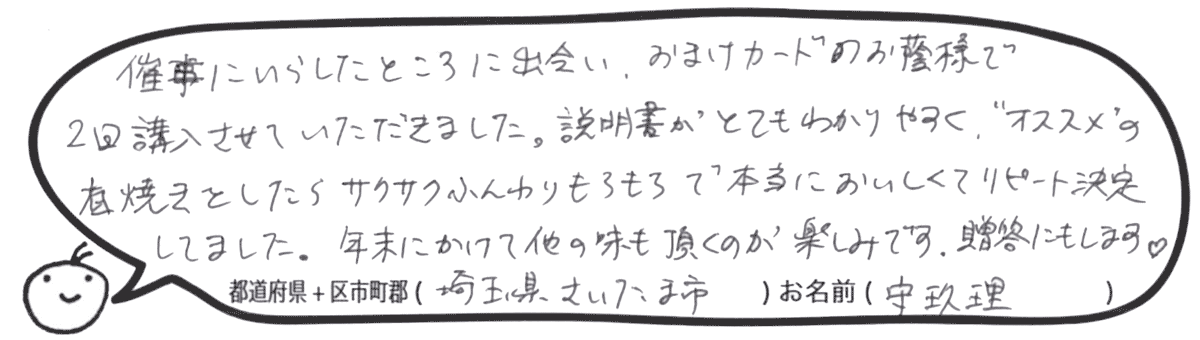 催事にいらしたところに出会い、おまけカードのお蔭様で
2回講入させていただきました。説明書がとてもわかりやすく、"オススメ"の
直焼きとしたらサクサクふんわりもろもろで本当においしくてリピート決定
してました。年末にかけて他の味も頂くのが楽しみです、贈答にもします♡
都道府県+区市町郡(埼玉県さいたま市)お名前(守玖理)